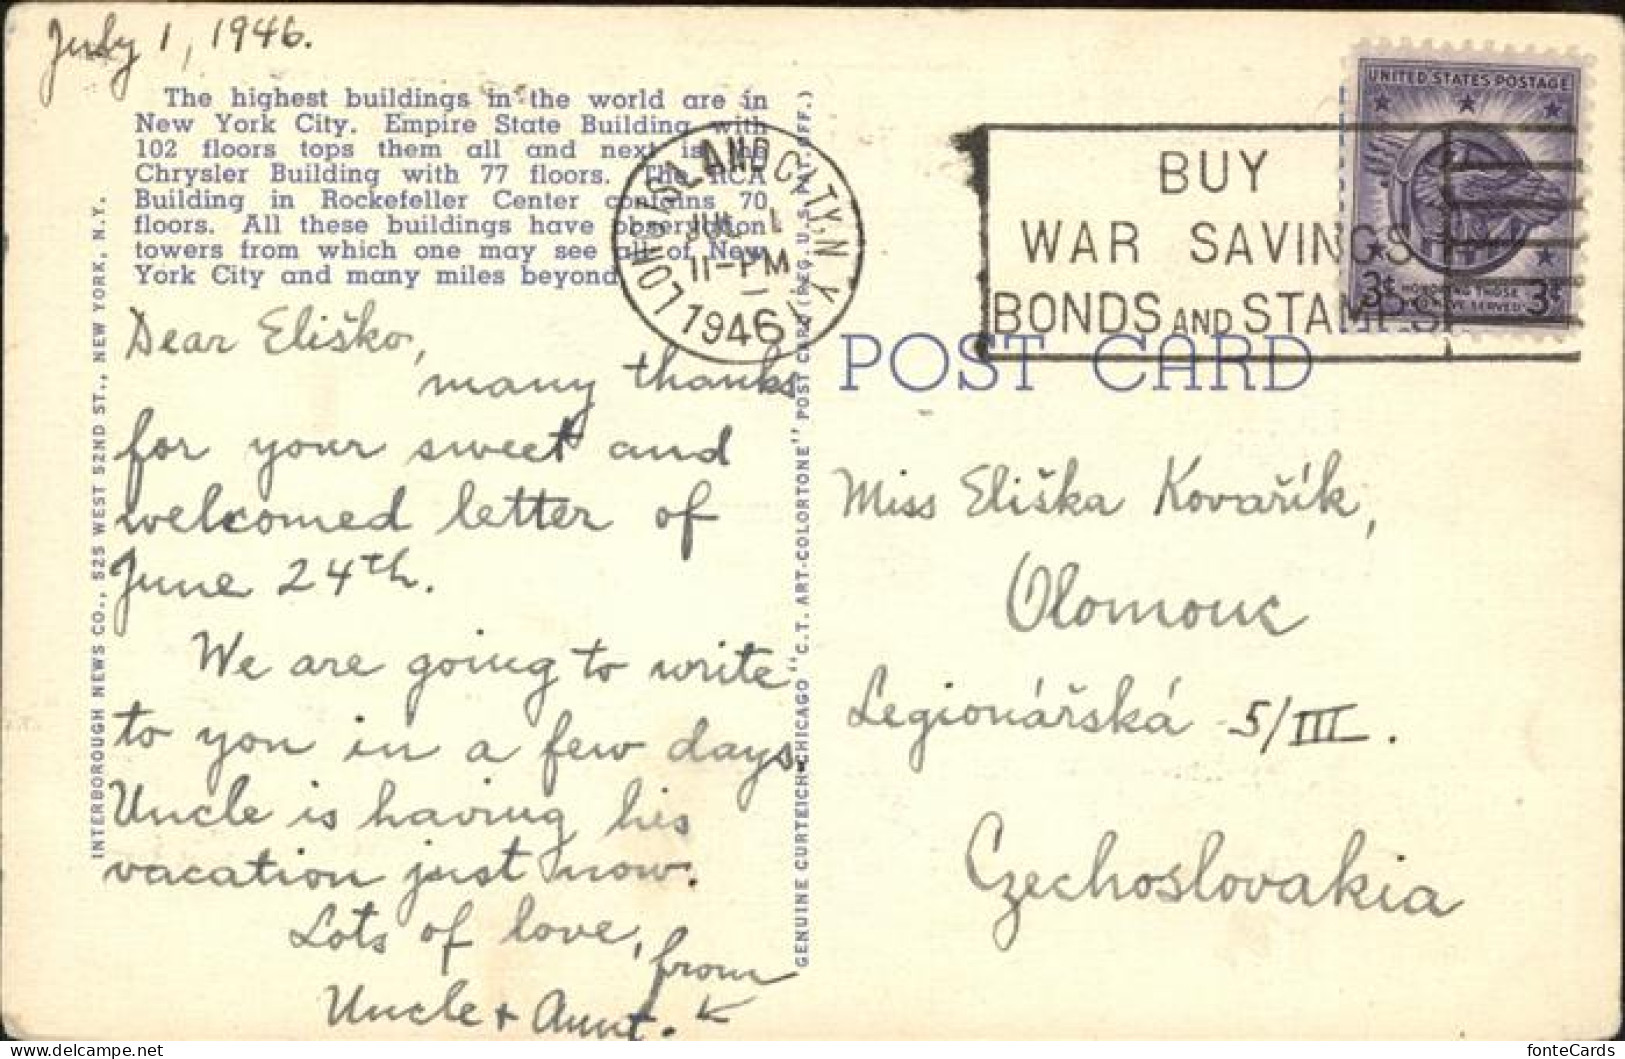 July 1, 1946.
The highest buildings in the world are in
New York City. Empire State Building with
102 floors tops them all and next is the
Chrysler Building with 77 floors. The RCA
Building in Rockefeller Center contains 70
floors. All these buildings have observation
towers from which one may see all of New
York City and many miles beyond.
INTERBOROUGH NEWS CO., 525 WEST 52ND ST., NEW YORK, N.Y.
Dear Eliško,
many thanks
for your sweet and
welcomed letter of
June 24th.
We are going to write
to you in a few days.
Uncle is having his
vacation just now.
Lots of love,
from
Uncle + Aunt.
GENUINE CURTEICH-CHICAGO "C.T. ART-COLORTONE" POST CARD (REG. U.S. PAT. OFF.)
LONG ISLAND CITY, N.Y.
JUL 1
11-PM
1946
BUY
WAR SAVINGS
BONDS AND STAMPS
UNITED STATES POSTAGE
HONORING THOSE
WHO HAVE SERVED
3¢ 3¢
POST CARD
Miss Eliška Kovařík,
Olomouc
Legionářská 5/III.
Czechoslovakia
fonteCards